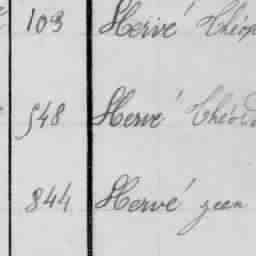 103 Hervé Théop
548 Hervé Théod
844 Hervé